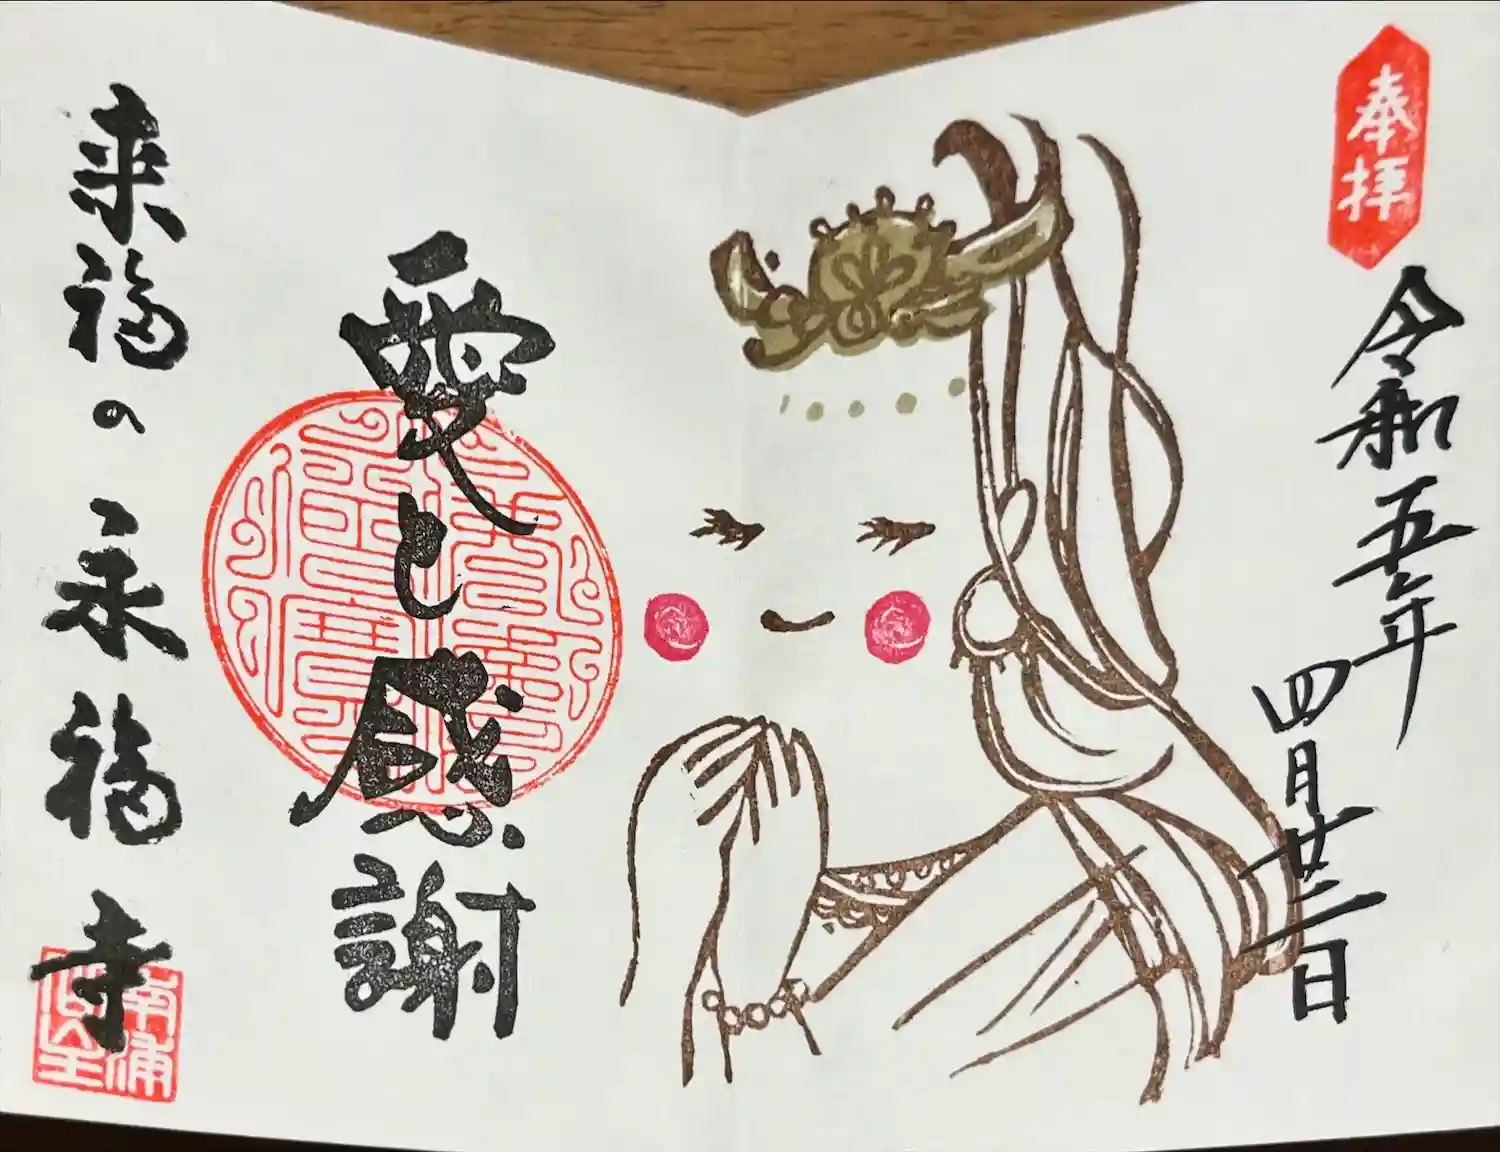 奉拝
令和五年
四月廿二日
愛と感謝
来福の永福寺